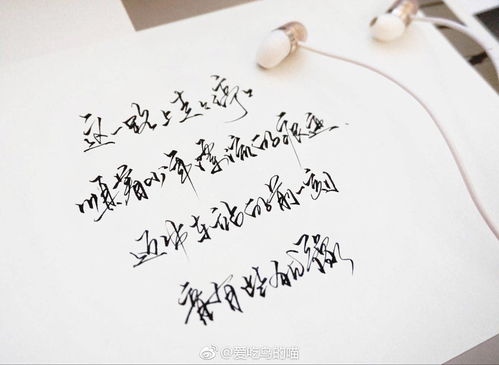 这一路上走走停停
顺着少年漂流的痕迹
迈出车站的前一刻
竟有些犹豫
@爱吃鸟的喵